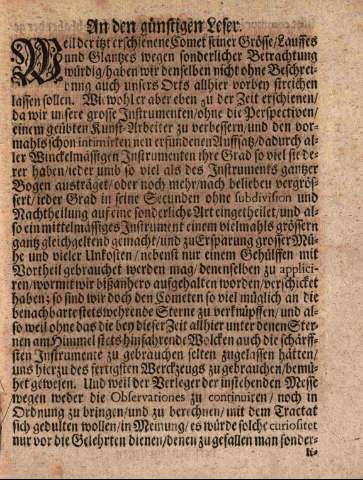 An den günstigen Leser.
Weil der itzt erschienene Comet seiner Grösse/Lauffes
und Glantzes wegen sonderlicher Betrachtung
würdig/haben wir denselben nicht ohne Beschrei-
bung auch unsers Orts allhier vorbey streichen
lassen sollen. Wiewohl er aber eben zu der Zeit erschienen/
da wir unsere grosse Instrumenten/ohne die Perspectiven/
einem geübten Kunst-Arbeiter zu verbessern/und den vor-
mahls schon intimirten neu erfundenen Auffsatz/dadurch al-
ler Winckelmässigen Instrumenten ihre Grad so viel sie de-
rer haben/ieder umb so viel als des Instruments gantzer
Bogen austräget/oder noch mehr/nach belieben vergrös-
sert/ieder Grad in seine Secunden ohne subdivision und
Nachtheilung auf eine sonderliche Art eingetheilet/und al-
so ein mittelmässiges Instrument einem vielmahls grössern
gantz gleichgeltend gemacht/und zu Ersparung grosser Mü-
he und vieler Unkosten/nebenst nur einem Gehülffen mit
Vortheil gebrauchet werden mag/denenselben zu applici-
ren/wormit wir bißanhero aufgehalten worden/verschicket
haben; so sind wir doch den Cometen so viel müglich an die
benachbarte stets wehrende Sterne zu verknüpffen/und al-
so weil ohne das die bey dieser Zeit allhier unter denen Ster-
nen am Himmel stets hinfahrende Wolcken auch die schärff-
sten Instrumente zu gebrauchen selten zugelassen hätten/
uns hierzu des fertigsten Werckzeugs zu gebrauchen/bemü-
het gewesen. Und weil der Verleger der instehenden Messe
wegen weder die Observationes zu continuiren/noch in
Ordnung zu bringen/und zu berechnen/mit dem Tractat
sich gedulten wollen/in Meinung/es würde solche curiositet
nur vor die Gelehrten dienen/denen zu gefallen man sonder-
li-